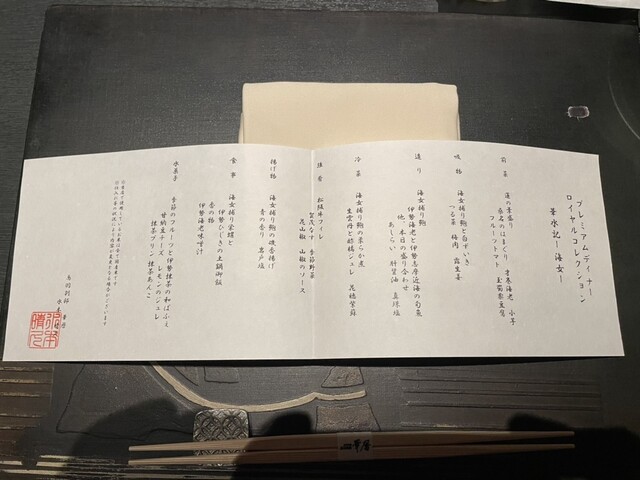 プレミアムディナー
ロイヤルコレクション
華水記ー海女ー
前菜
海の幸盛り
桑名のはまぐり 才巻海老 小芋
フルーツトマト 玉蜀黍豆腐
吸物
海女捕り鮑と白ずいき
つる菜 梅肉 露生姜
造り
海女捕り鮑
伊勢海老と伊勢志摩近海の旬魚
他、本日の盛り合わせ
あしらい 肝醤油 真珠塩
冷菜
海女捕り鮑の柔らか煮
生雲丹と酢橘ジュレ 花穂紫蘇
強肴
松阪牛フィレ
賀茂なす 季節野菜
花山椒 山椒のソース
揚げ物
海女捕り鮑の磯香揚げ
青のり 岩戸塩
食事
海女捕り栄螺と
伊勢ひじきの土鍋御飯
香の物
伊勢海老味噌汁
水菓子
季節のフルーツと伊勢抹茶の和ぱふぇ
甘納豆チーズ レモンのジュレ
抹茶プリン 抹茶あんこ